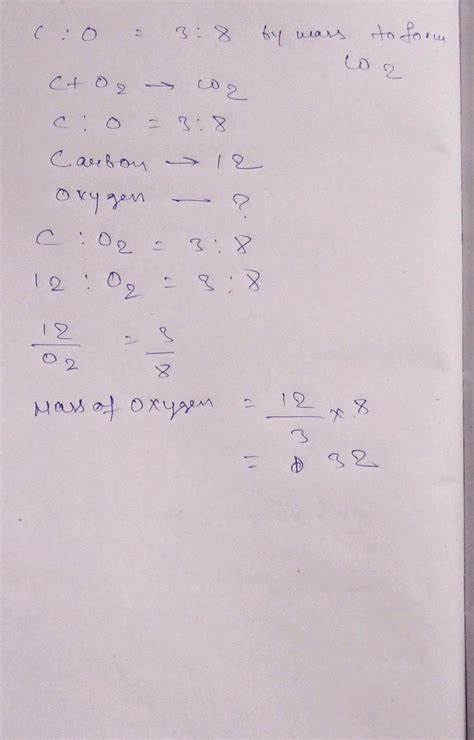 C : O = 3 : 8 by mass to form
CO2
C + O2 → CO2
C : O = 3 : 8
Carbon → 12
Oxygen — ?
C : O2 = 3 : 8
12 : O2 = 3 : 8
12/O2 = 3/8
Mass of oxygen = 12/3 × 8
= 32